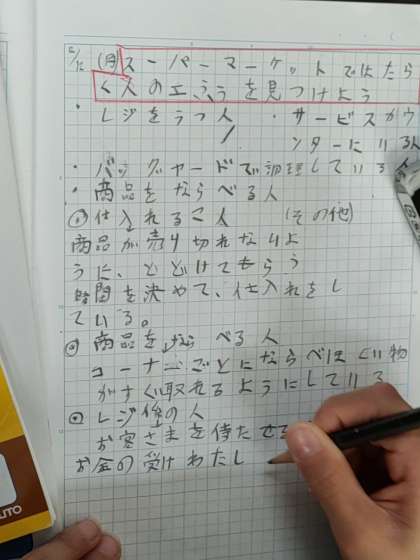 12/12 (月) スーパーマーケットではたら
く人のエふうを見つけよう
・レジをうつ人 ・サービスカウ
ンターにいる人
・バックヤードで調理している人
・商品をならべる人
◎仕入れる人 (その他)
商品が売り切れないよ
うに、とどけてもらう
時間を決めて、仕入れをし
ている。
◎商品をならべる人
コーナーごとにならべほしい物
がすぐ取れるようにしている
◎レジ係の人
お客さまを待たせ
お金の受けわたし